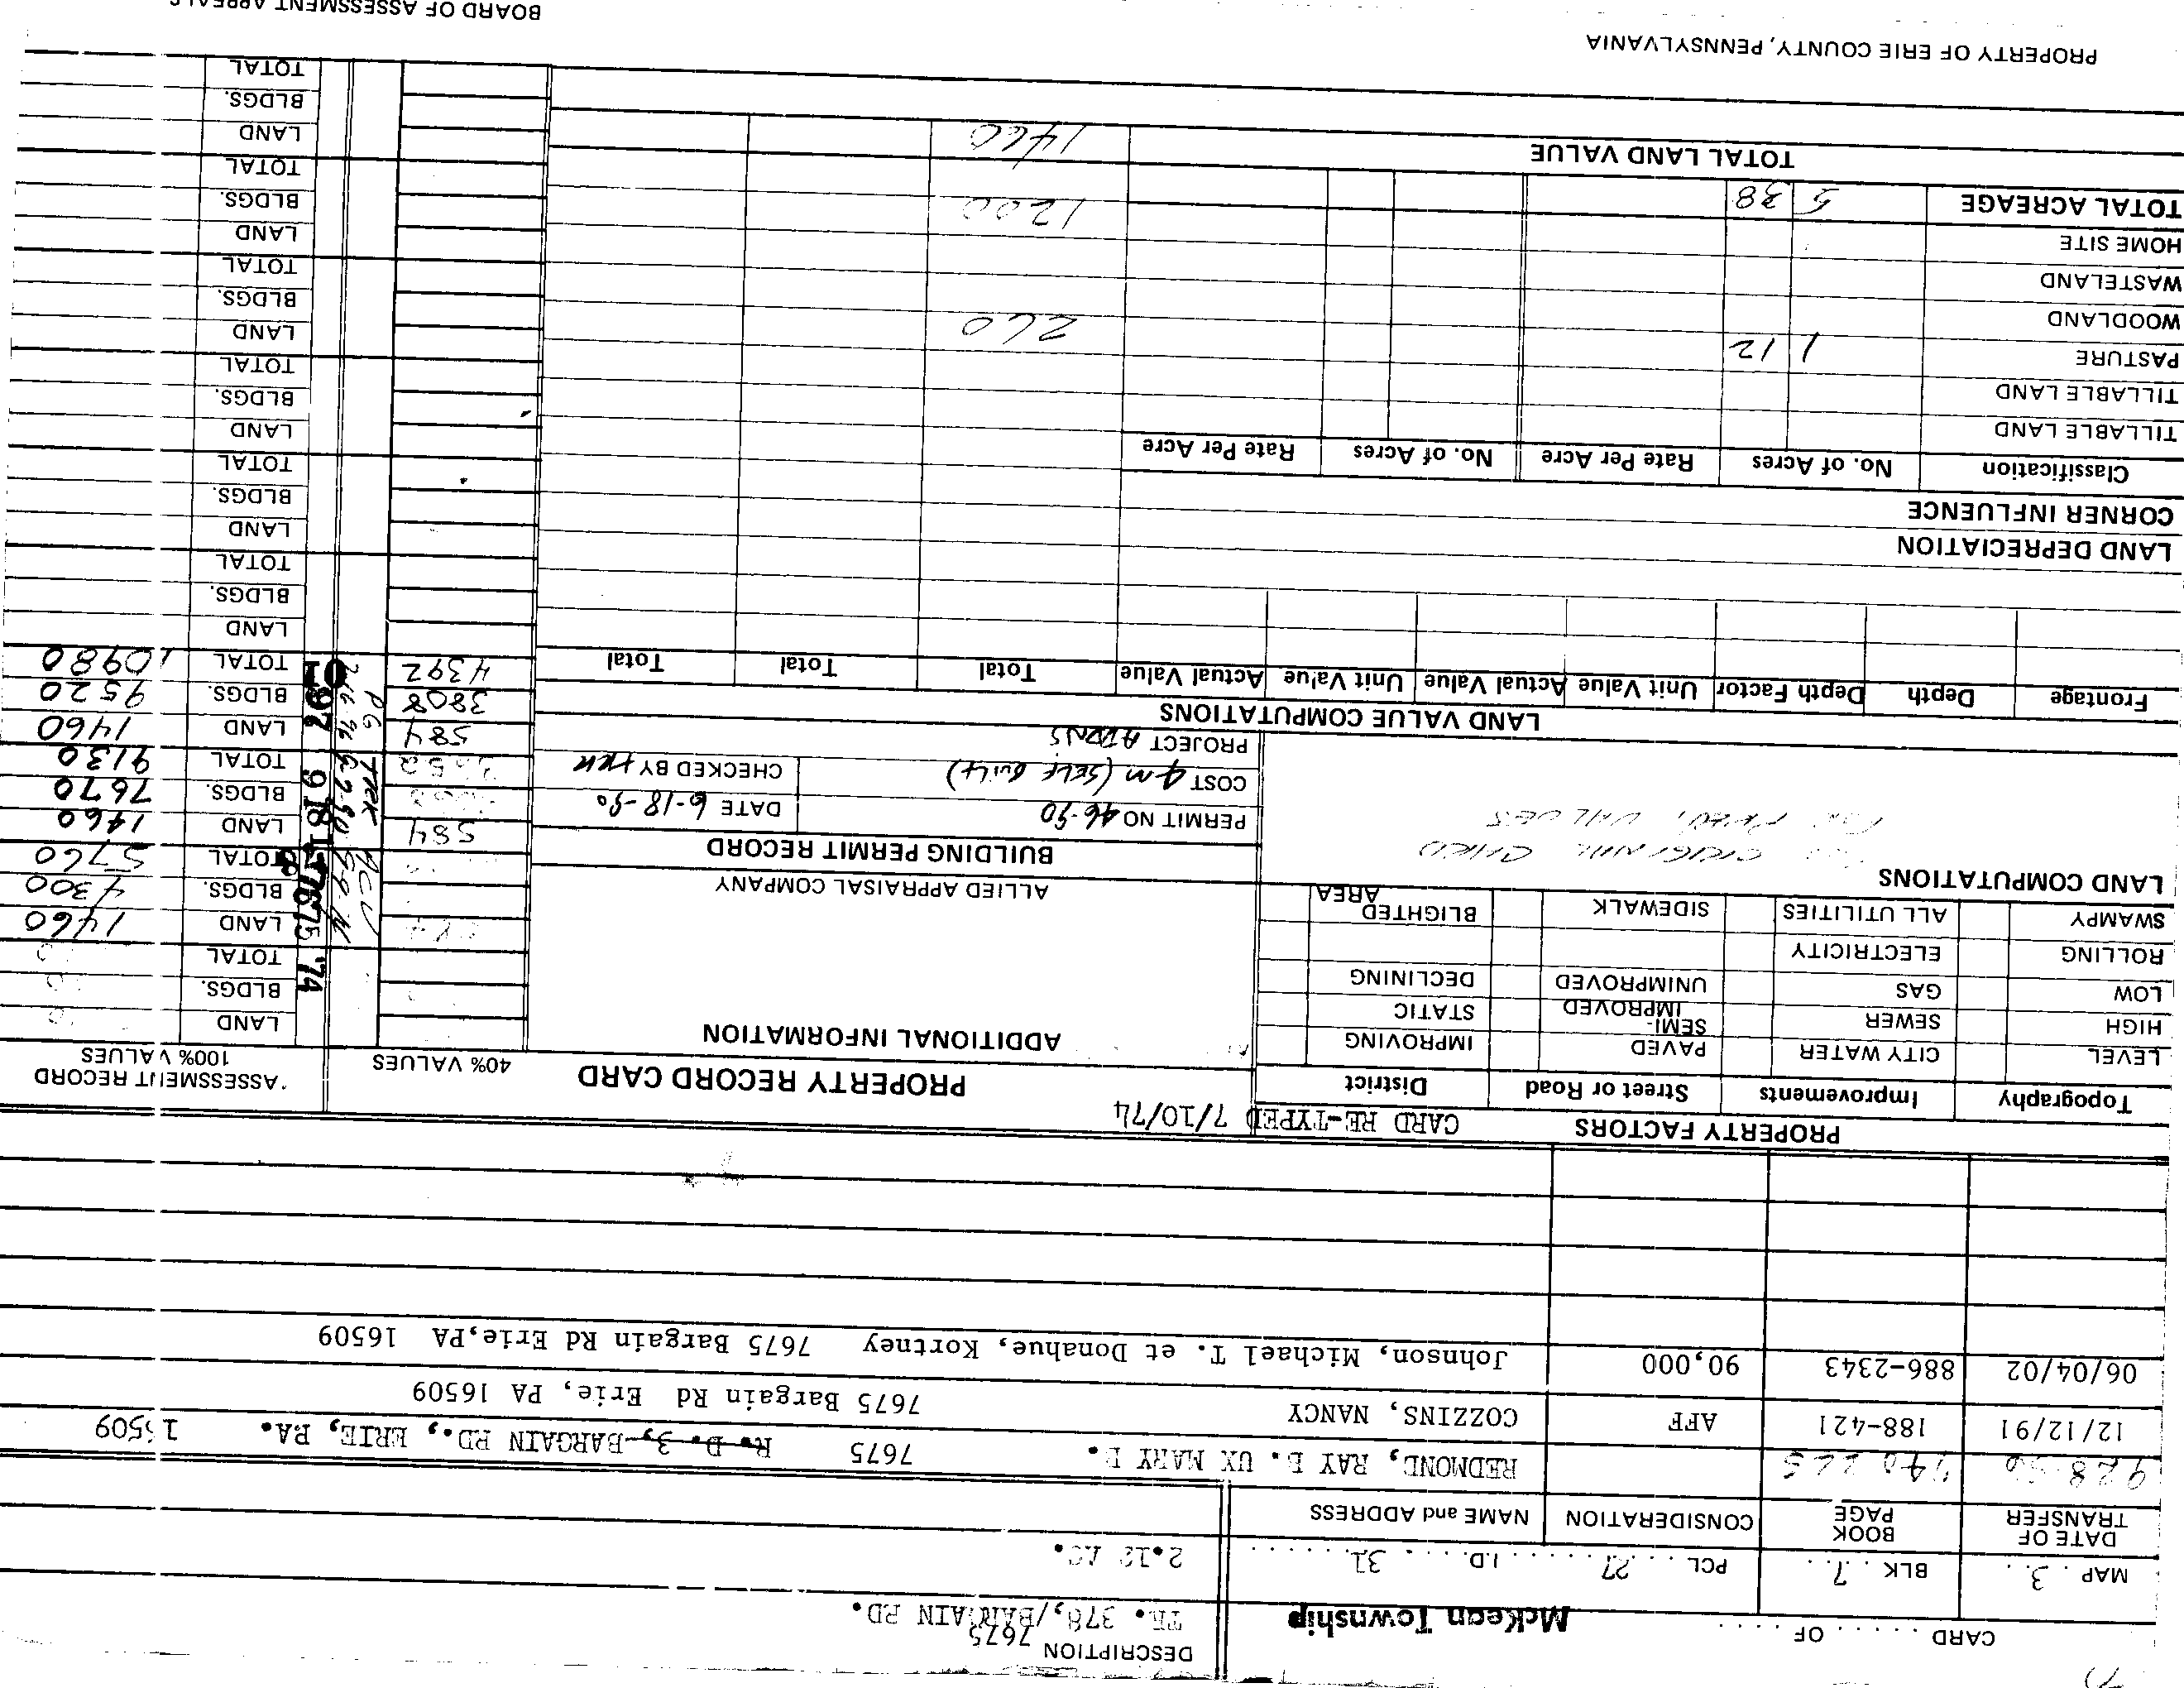 CARD . . . . . OF . . . .
McKean Township
DESCRIPTION 7675
TR. 378, / BARGAIN RD.
MAP . 3 . . BLK . 7 . . PCL . . . 27 . . . . . I.D. . . . 31 . . . . .
2.12 AC.
DATE OF TRANSFER
BOOK PAGE
CONSIDERATION
NAME and ADDRESS
REDMOND, RAY E. UX MARY E. 7675 R. D. 3, BARGAIN RD., ERIE, PA. 16509
12/12/91 188-421 AFF COZZINS, NANCY 7675 Bargain Rd Erie, PA 16509
06/04/02 886-2343 90,000 Johnson, Michael T. et Donahue, Kortney 7675 Bargain Rd Erie,PA 16509
PROPERTY FACTORS
CARD RE-TYPED 7/10/74
Topography Improvements Street or Road District
LEVEL CITY WATER PAVED IMPROVING
HIGH SEWER SEMI-IMPROVED STATIC
LOW GAS UNIMPROVED DECLINING
ROLLING ELECTRICITY
SWAMPY ALL UTILITIES SIDEWALK BLIGHTED AREA
LAND COMPUTATIONS
PROPERTY RECORD CARD
ADDITIONAL INFORMATION
ALLIED APPRAISAL COMPANY
BUILDING PERMIT RECORD
PERMIT NO 46-90 DATE 6-18-90
COST 4m (SELF BUILT) CHECKED BY
PROJECT ADDNS
40% VALUES
ASSESSMENT RECORD
100% VALUES
LAND
BLDGS.
TOTAL
'74
LAND 1460
BLDGS. 4300
TOTAL 5760
584 LAND 1460
BLDGS. 7670
TOTAL 9130
584 LAND 1460
3808 BLDGS. 9520
4392 TOTAL 10980
LAND
BLDGS.
TOTAL
LAND
BLDGS.
TOTAL
LAND
BLDGS.
TOTAL
LAND
BLDGS.
TOTAL
LAND
BLDGS.
TOTAL
LAND
BLDGS.
TOTAL
LAND VALUE COMPUTATIONS
Frontage Depth Depth Factor Unit Value Actual Value Unit Value Actual Value Total Total Total
LAND DEPRECIATION
CORNER INFLUENCE
Classification No. of Acres Rate Per Acre No. of Acres Rate Per Acre
TILLABLE LAND
TILLABLE LAND
PASTURE 1 12 260
WOODLAND
WASTELAND
HOME SITE 1200
TOTAL ACREAGE 5 38
TOTAL LAND VALUE 1460
PROPERTY OF ERIE COUNTY, PENNSYLVANIA
BOARD OF ASSESSMENT APPEALS